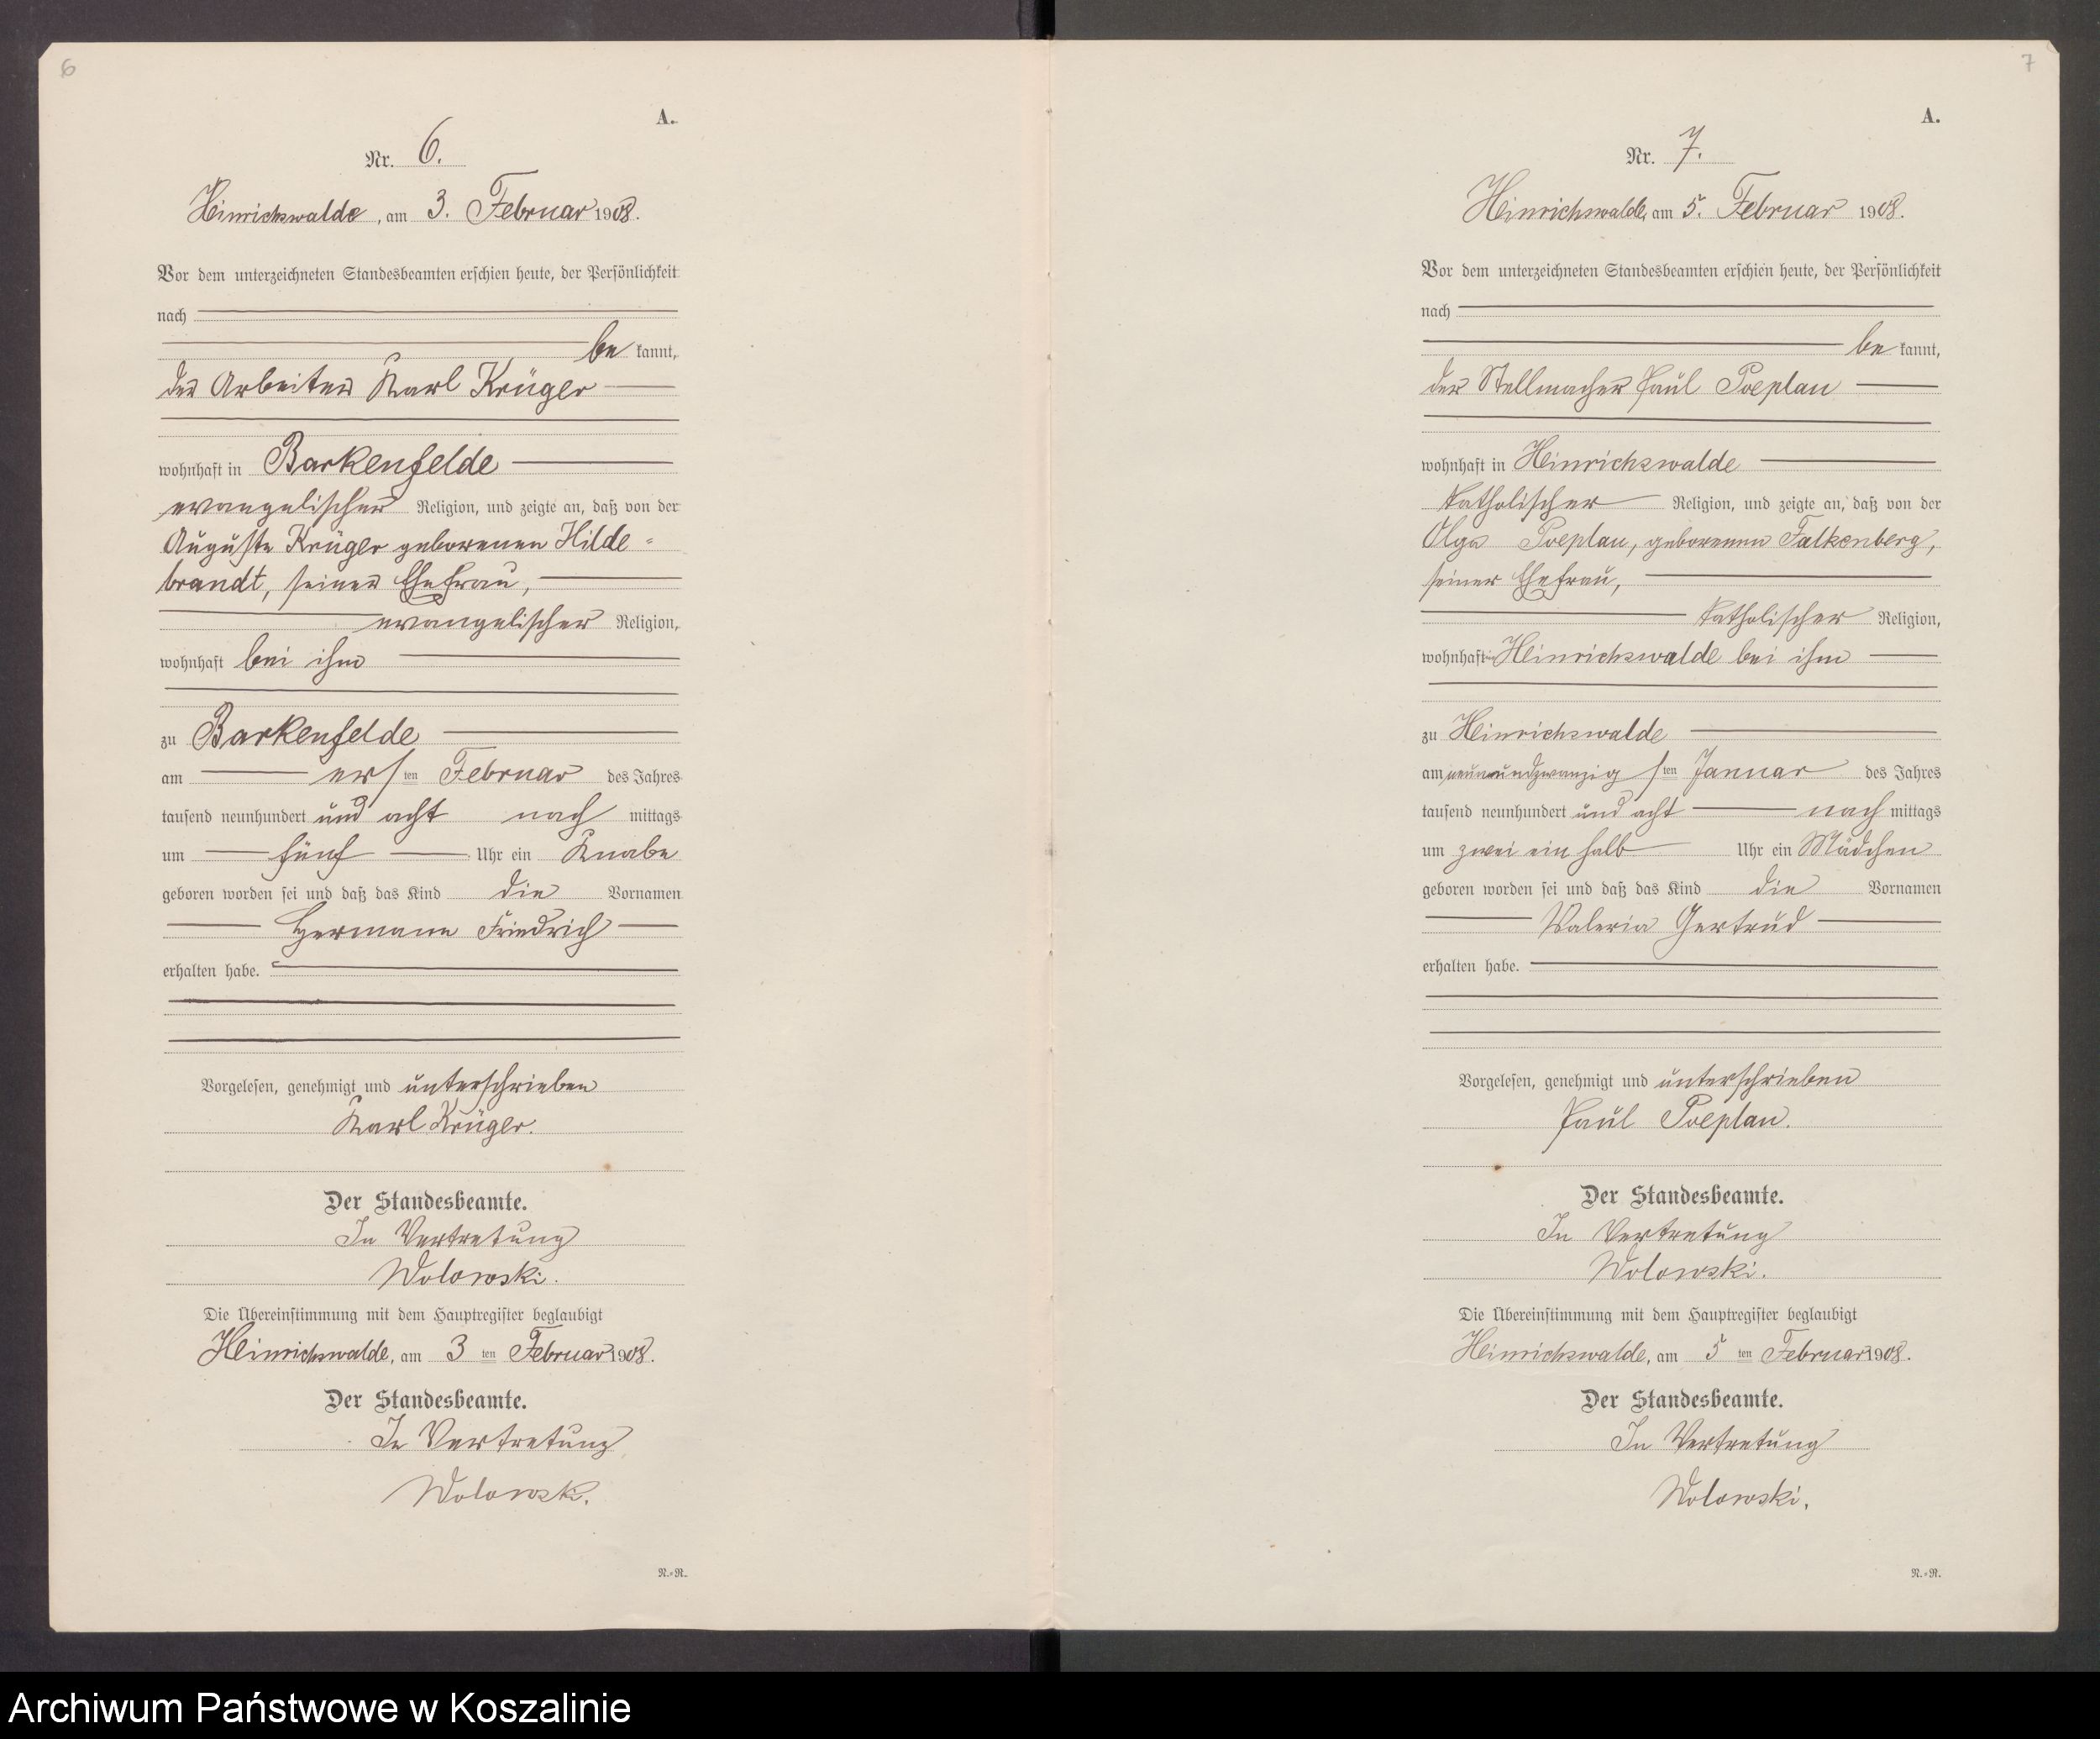 6
A.
Nr. 6.
Heinrichswalde, am 3. Februar 1908.
Vor dem unterzeichneten Standesbeamten erschien heute, der Persönlichkeit
nach
be kannt,
der Arbeiter Karl Krüger
wohnhaft in Barkenfelde
evangelischer Religion, und zeigte an, daß von der
Auguste Krüger geborenen Hilde-
brandt, seiner Ehefrau,
evangelischer Religion,
wohnhaft bei ihm
zu Barkenfelde
am ersten Februar des Jahres
tausend neunhundert und acht nach mittags
um fünf Uhr ein Knabe
geboren worden sei und daß das Kind die Vornamen
Hermann Friedrich
erhalten habe.
Vorgelesen, genehmigt und unterschrieben
Karl Krüger.
Der Standesbeamte.
In Vertretung
Wolowski.
Die Übereinstimmung mit dem Hauptregister beglaubigt
Heinrichswalde, am 3ten Februar 1908.
Der Standesbeamte.
In Vertretung
Wolowski.
N.-R.
7
A.
Nr. 7.
Heinrichswalde, am 5. Februar 1908.
Vor dem unterzeichneten Standesbeamten erschien heute, der Persönlichkeit
nach
be kannt,
der Stellmacher Paul Poeplau
wohnhaft in Heinrichswalde
katholischer Religion, und zeigte an, daß von der
Olga Poeplau, geborenen Falkenberg,
seiner Ehefrau,
katholischer Religion,
wohnhaft in Heinrichswalde bei ihm
zu Heinrichswalde
am neunundzwanzigsten Januar des Jahres
tausend neunhundert und acht nach mittags
um zwei ein halb Uhr ein Mädchen
geboren worden sei und daß das Kind die Vornamen
Valeria Gertrud
erhalten habe.
Vorgelesen, genehmigt und unterschrieben
Paul Poeplau.
Der Standesbeamte.
In Vertretung
Wolowski.
Die Übereinstimmung mit dem Hauptregister beglaubigt
Heinrichswalde, am 5ten Februar 1908.
Der Standesbeamte.
In Vertretung
Wolowski.
N.-R.
Archiwum Państwowe w Koszalinie